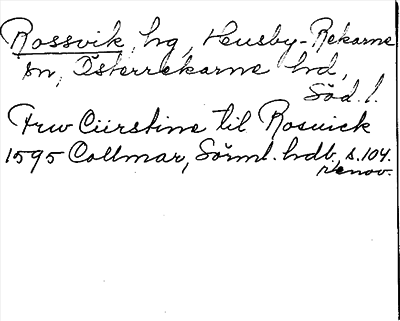 Rossvik, hg, Husby-Rekarne
sn, Österrekarne hd,
Söd. l.
Frw Ciirstine til Rosuick
1595 Collmar, Sörml. hdb., s. 104.
renov.